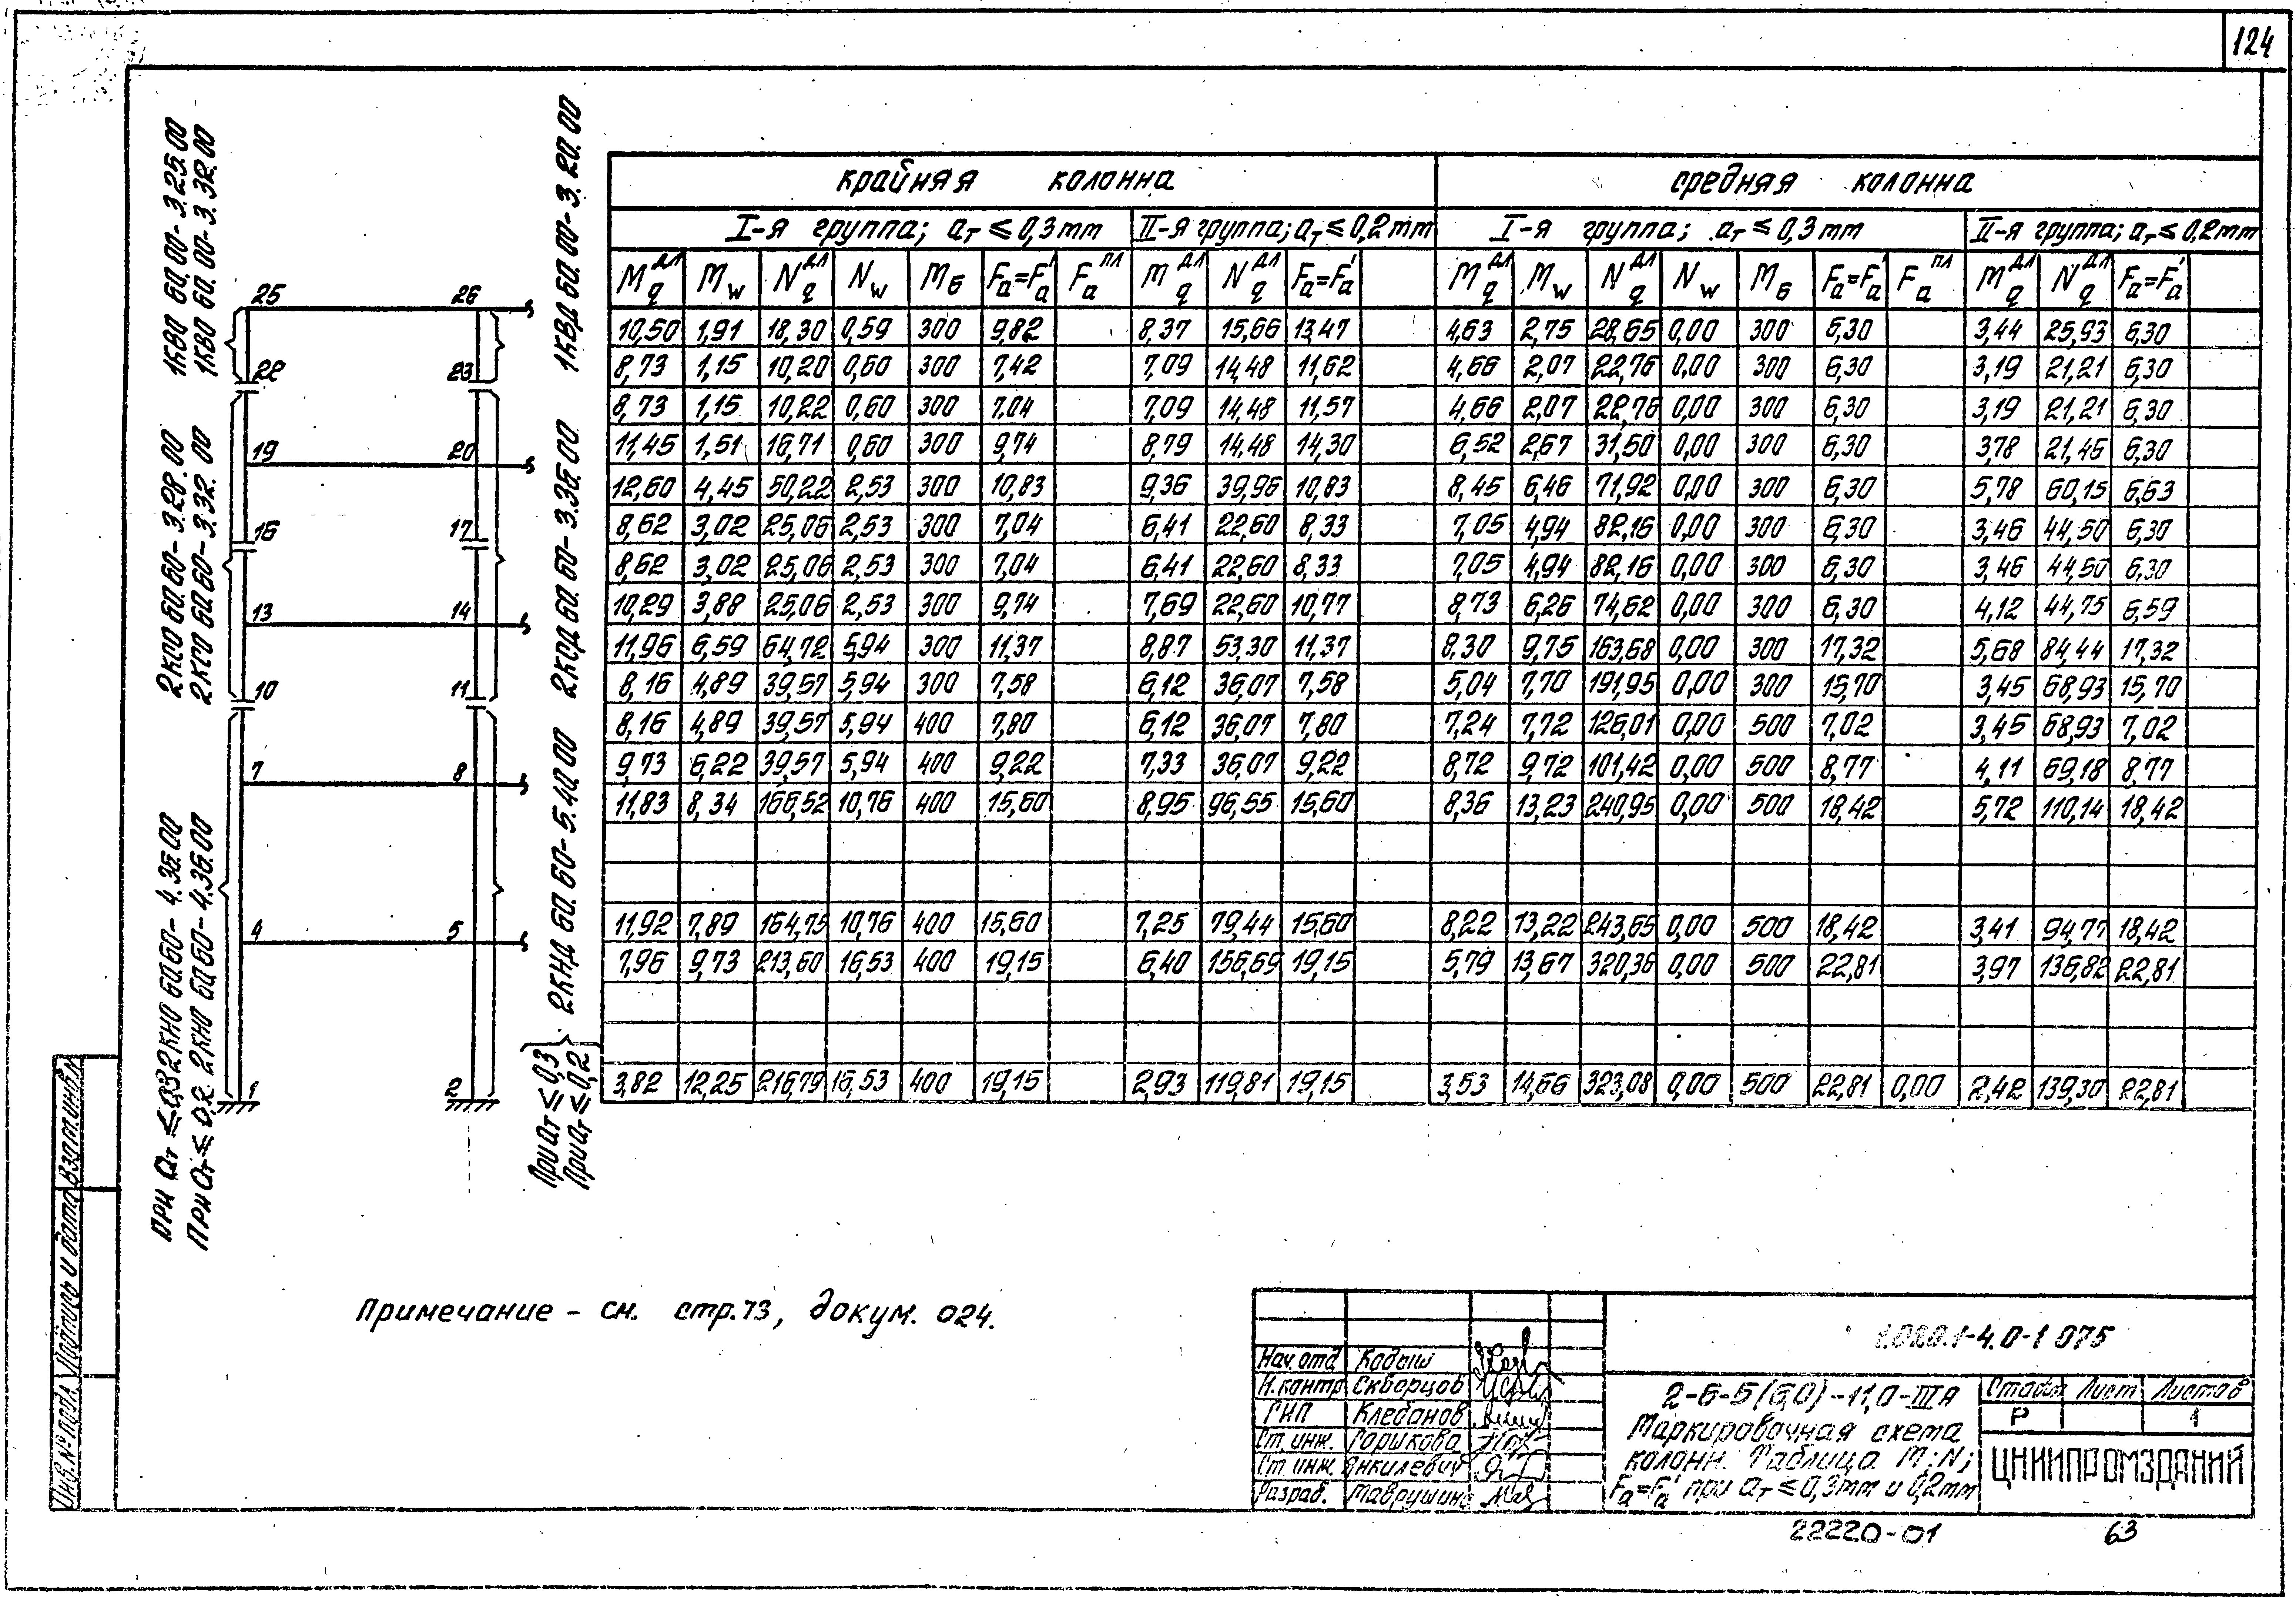 124
1КВО 60.00-3.25.00
1КВО 60.00-3.32.00
2КСО 60.60-3.28.00
2КСО 60.60-3.32.00
При aт ≤ 0,3 2КНО 60.60-4.36.00
При aт ≤ 0,2 2КНО 60.60-4.36.00
25 26
22 23
19 20
16 17
13 14
10 11
7 8
4 5
1 2
1КВД 60.00-3.20.00
2КСД 60.60-3.36.00
2КНД 60.60-5.40.00
При aт ≤ 0,3
При aт ≤ 0,2
крайняя колонна средняя колонна
I-я группа; aт ≤ 0,3mm II-я группа; aт ≤ 0,2mm I-я группа; aт ≤ 0,3mm II-я группа; aт ≤ 0,2mm
Mqдл Mw Nqдл Nw Mб Fa=Fa' Faпл Mqдл Nqдл Fa=Fa' Mqдл Mw Nqдл Nw Mб Fa=Fa' Faпл Mqдл Nqдл Fa=Fa'
10,50 1,91 18,30 0,59 300 9,82 8,37 15,66 13,47 4,63 2,75 28,65 0,00 300 6,30 3,44 25,93 6,30
8,73 1,15 10,20 0,60 300 7,42 7,09 14,48 11,62 4,66 2,07 22,76 0,00 300 6,30 3,19 21,21 6,30
8,73 1,15 10,22 0,60 300 7,04 7,09 14,48 11,57 4,66 2,07 22,76 0,00 300 6,30 3,19 21,21 6,30
11,45 1,51 16,71 0,60 300 9,74 8,79 14,48 14,30 6,52 2,67 31,50 0,00 300 6,30 3,78 21,46 6,30
12,60 4,45 50,22 2,53 300 10,83 9,36 39,96 10,83 8,45 6,46 71,92 0,00 300 6,30 5,78 60,15 6,63
8,62 3,02 25,06 2,53 300 7,04 6,41 22,60 8,33 7,05 4,94 82,16 0,00 300 6,30 3,46 44,50 6,30
8,62 3,02 25,06 2,53 300 7,04 6,41 22,60 8,33 7,05 4,94 82,16 0,00 300 6,30 3,46 44,50 6,30
10,29 3,88 25,06 2,53 300 9,74 7,69 22,60 10,77 8,73 6,26 74,62 0,00 300 6,30 4,12 44,75 6,59
11,96 6,59 64,72 5,94 300 11,37 8,87 53,30 11,37 8,30 9,75 163,68 0,00 300 17,32 5,68 84,44 17,32
8,16 4,89 39,57 5,94 300 7,58 6,12 36,07 7,58 5,04 7,70 191,95 0,00 300 15,70 3,45 68,93 15,70
8,16 4,89 39,57 5,94 400 7,80 6,12 36,07 7,80 7,24 7,72 126,01 0,00 500 7,02 3,45 68,93 7,02
9,73 6,22 39,57 5,94 400 9,22 7,33 36,07 9,22 8,72 9,72 101,42 0,00 500 8,77 4,11 69,18 8,77
11,83 8,34 166,52 10,76 400 15,60 8,95 96,55 15,60 8,36 13,23 240,95 0,00 500 18,42 5,72 110,14 18,42
11,92 7,89 164,75 10,76 400 15,60 7,25 79,44 15,60 8,22 13,22 243,65 0,00 500 18,42 3,41 94,77 18,42
7,96 9,73 213,60 16,53 400 19,15 6,40 156,69 19,15 5,79 13,67 320,36 0,00 500 22,81 3,97 136,82 22,81
3,82 12,25 216,79 16,53 400 19,15 2,93 119,81 19,15 3,53 14,66 323,08 0,00 500 22,81 0,00 2,42 139,30 22,81
Примечание - см. стр. 73, докум. 024.
Инв. № подл. Подпись и дата Взам. инв. №
1.020.1-4.0-1 075
Нач. отд Кодыш
Н. контр Скворцов
ГИП Клебанов
Ст. инж. Горшкова
Ст. инж. Янкилевич
Разраб. Маврушина
2-6-5(6,0)-11,0-IIIA
Маркировочная схема
колонн. Таблица M; N;
Fa=Fa' при aт ≤ 0,3mm и 0,2mm
Стадия Лист Листов
Р 1
ЦНИИПРОМЗДАНИЙ
22220-01 63